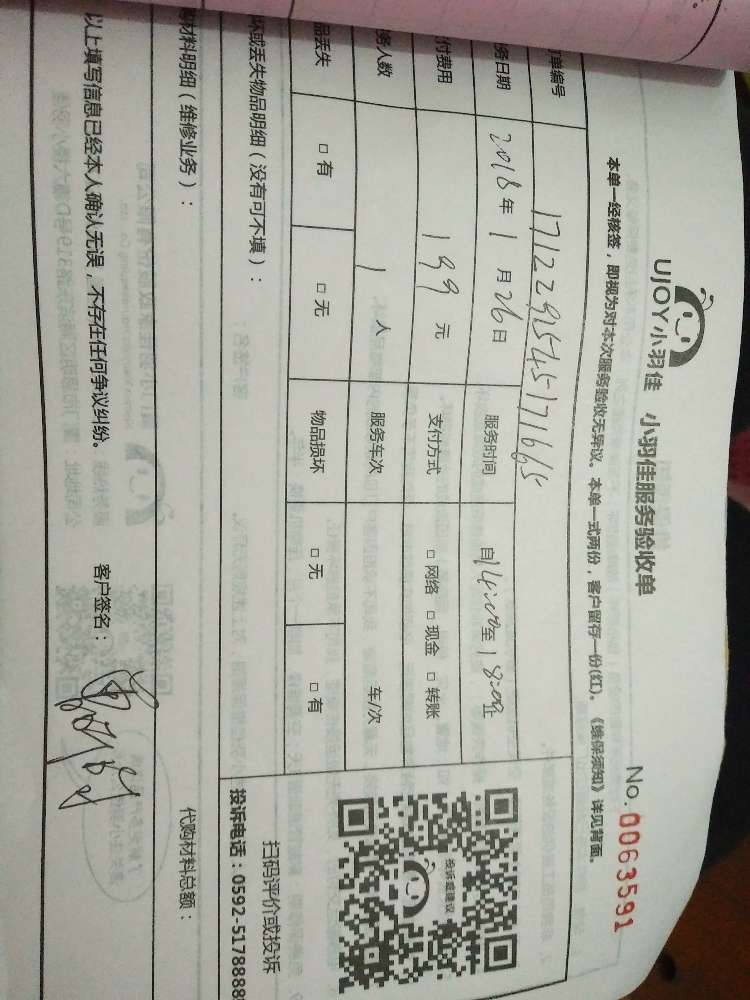 UJOY小羽佳 小羽佳服务验收单
No. 0063591
本单一经核签，即视为对本次服务验收无异议。本单一式两份，客户留存一份(红)。《维保须知》详见背面。
单编号 1712291545171665
务日期 2018年1月26日 服务时间 自14:00至18:00止
付费用 199元 支付方式 □ 网络 □ 现金 □ 转账
务人数 1人 服务车次 车/次
品丢失 □ 有 □ 无 物品损坏 □ 无 □ 有
坏或丢失物品明细（没有可不填）：
投诉或建议
扫码评价或投诉
投诉电话：0592-5178888
购材料明细（维修业务）：
代购材料总额：
以上填写信息已经本人确认无误，不存在任何争议纠纷。
客户签名：